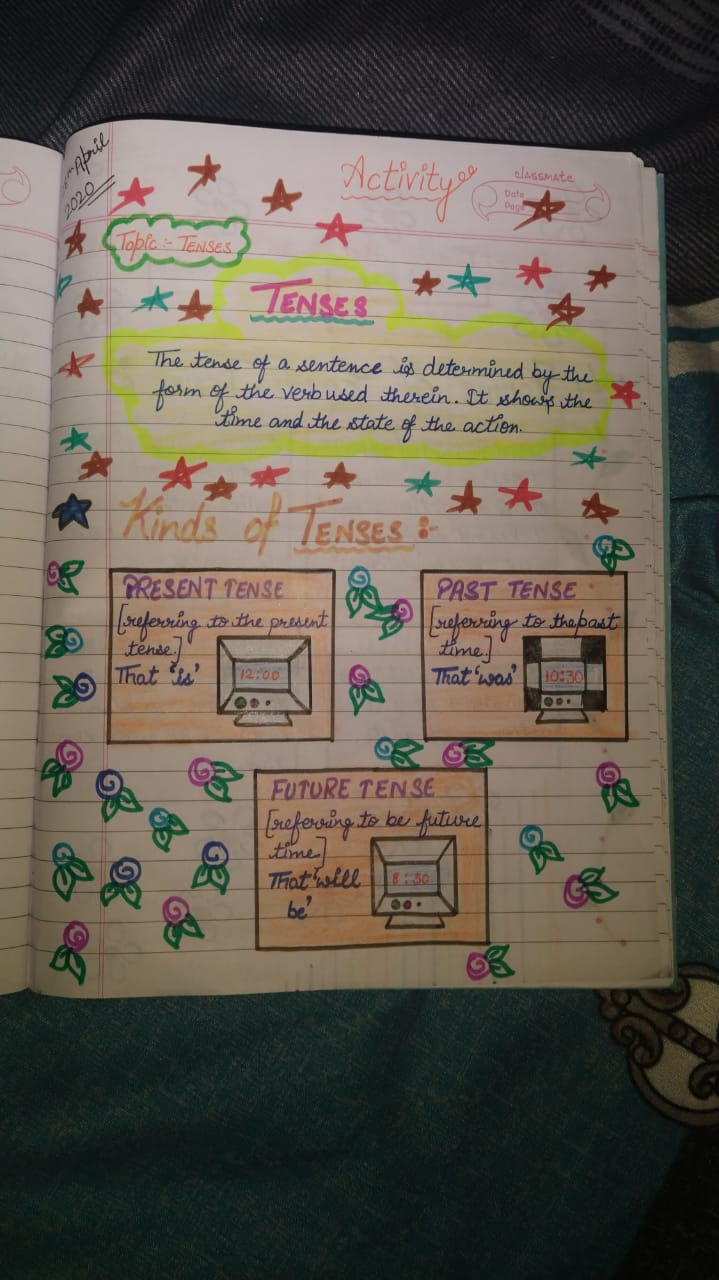 April
2020
Activity
classmate
Date
Page
Topic :- TENSES
TENSES
The tense of a sentence is determined by the
form of the verb used therein. It shows the
time and the state of the action.
Kinds of TENSES :-
PRESENT TENSE
[referring to the present
tense.]
That 'is'
12:00
PAST TENSE
[referring to the past
time.]
That 'was'
10:30
FUTURE TENSE
[referring to be future
time]
That 'will
be'
8:30